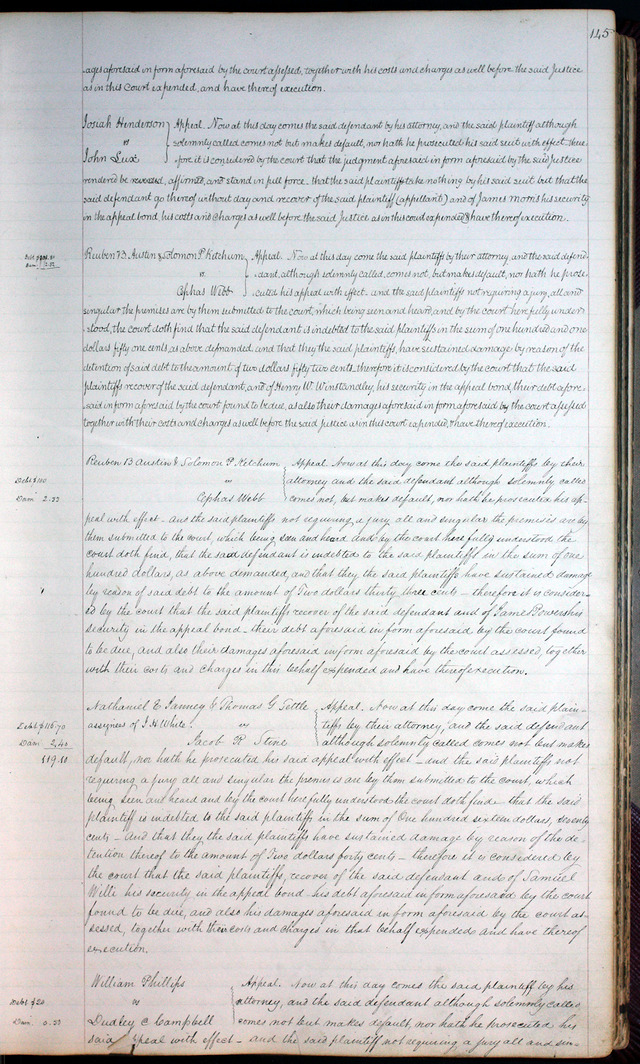 145
ages aforesaid in form aforesaid by the court assessed, together with his costs and charges as well before the said Justice
as in this Court expended, and have thereof execution.
Josiah Henderson Appeal. Now at this day comes the said defendant by his attorney, and the said plaintiff although
vs solemnly called comes not but makes default, nor hath he prosecuted his said suit with effect. there
John Lux fore it is considered by the court that the judgment aforesaid in form aforesaid by the said Justice
rendered be reversed, affirmed, and stand in full force. that the said plaintiff take nothing by his said suit but that the
said defendant go thereof without day and recover of the said plaintiff (appellant) and of James his security
in the appeal bond, his costs and charges as well before the said Justice as in this court expended & have thereof execution.
Reuben B Austin & Solomon P. Ketchum Appeal. Now at this day come the said plaintiffs by their attorney, and the said defen-
vs. dant, although solemnly called, comes not, but makes default, nor hath he prose-
Cephas Webb cuted his appeal with effect. and the said plaintiffs not requiring a jury, all and
singular the premises are by them submitted to the court, which being seen and heard, and by the court here fully under-
stood, the court doth find that the said defendant is indebted to the said plaintiffs in the sum of one hundred and one
dollars fifty one cents, as above demanded, and that they the said plaintiffs, have sustained damage by reason of the
detention of said debt to the amount of two dollars fifty two cents, therefore it is considered by the court that the said
plaintiffs recover of the said defendant, and of Henry W. Winstandley, his security in the appeal bond, their debt afore-
said in form aforesaid by the court found to be due, as also their damages aforesaid in form aforesaid by the court assessed
together with their costs and charges as well before the said Justice as in this court expended, & have thereof execution.
Reuben B Austin & Solomon P. Ketchum Appeal. Now at this day come the said plaintiffs by their
Debt $100 vs attorney and the said defendant although solemnly called
Dam 2.33 Cephas Webb comes not, but makes default, nor hath he prosecuted his ap-
peal with effect – and the said plaintiffs not requiring, a jury all and singular the premises are by
them submitted to the court, which being seen and heard and by the court here fully understood the
court doth find, that the said defendant is indebted to the said plaintiffs in the sum of one
hundred dollars, as above demanded, and that they the said plaintiffs have sustained damage
by reason of said debt to the amount of Two dollars thirty three cents – therefore it is consider-
ed by the court that the said plaintiffs recover of the said defendant and of James Bowers his
security in the appeal bond – their debt aforesaid in form aforesaid by the court found
to be due, and also their damages aforesaid in form aforesaid by the court assessed, together
with their costs and charges in this behalf expended and have thereof execution.
Nathaniel E. Janney & Thomas G Tettle Appeal. Now at this day come the said plain-
Debt $116.70 assignees of J. H. White. vs tiffs by their attorney, and the said defendant
Dam 2.40 Jacob R Stine although solemnly called comes not but makes
119.10 default, nor hath he prosecuted his said appeal with effect – and the said plaintiffs not
requiring a jury all and singular the premises are by them submitted to the court, which
being seen and heard and by the court here fully understood the court doth find that the said
plaintiff is indebted to the said plaintiff in the sum of One hundred sixteen dollars, seventy
cents – and that they the said plaintiffs have sustained damage by reason of the de-
tention thereof to the amount of Two dollars forty cents – therefore it is considered by
the court that the said plaintiffs, recover of the said defendant and of Samuel
Willi his security in the appeal bond – his debt aforesaid in form aforesaid by the court
found to be due, and also his damages aforesaid in form aforesaid by the court as-
sessed, together with their costs and charges in that behalf expended and have thereof
execution.
William Phillips Appeal. Now at this day comes the said plaintiff by his
Debt $20 vs attorney, and the said defendant although solemnly called
Dam 0.33 Dudley C Campbell comes not but makes default, nor hath he prosecuted his
said peal with effect – and the said plaintiff not requiring a jury all and sin-